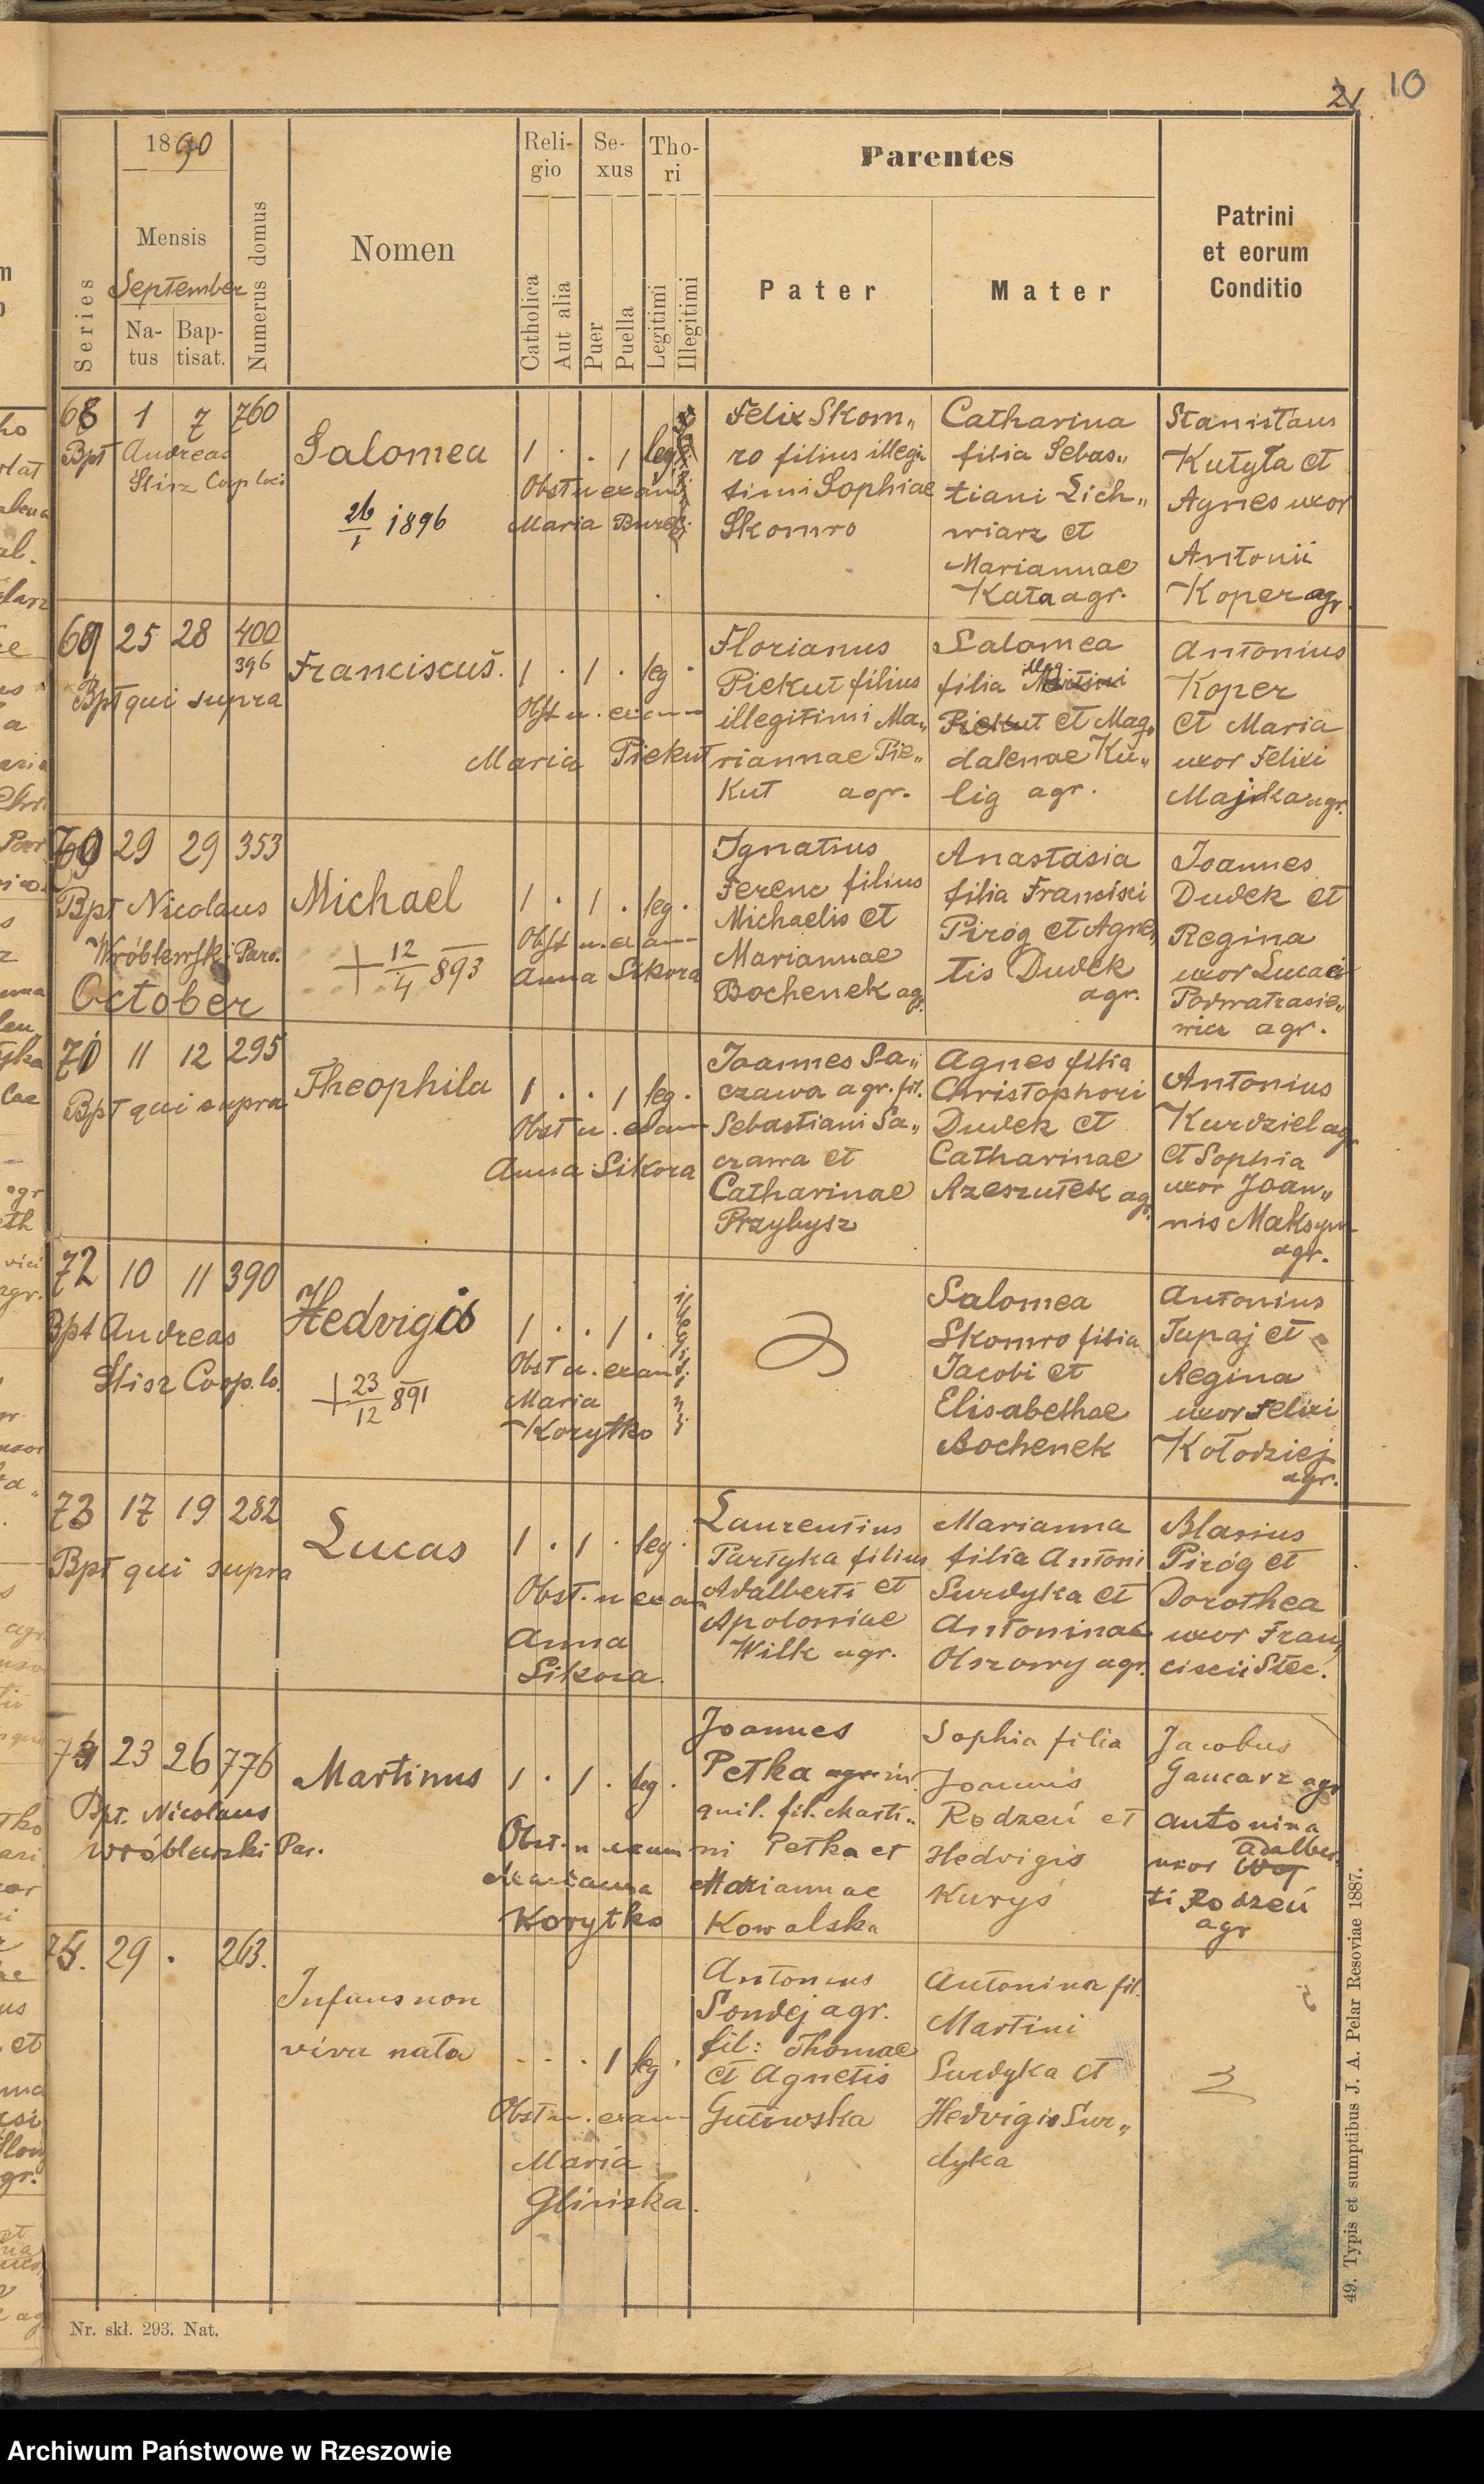 21 10
1890
Series
Mensis
September
Na-
tus
Bap-
tisat.
Numerus domus
Nomen
Reli-
gio
Catholica
Aut alia
Se-
xus
Puer
Puella
Tho-
ri
Legitimi
Illegitimi
Parentes
Pater
Mater
Patrini
et eorum
Conditio
68 1 7 760
Bpt Andreas
Slisz Coop loci
Salomea
26/1 1896
1 . . 1 leg
Obst n exam
Maria Burek
Felix Skom„
ro filius illegi
timi Sophiae
Skomro
Catharina
filia Sebas„
tiani Lich„
wiarz et
Mariannae
Kata agr.
Stanislaus
Kutyła et
Agnes uxor
Antonii
Koper agr.
69 25 28 400
396
Bpt qui supra
Franciscus.
1 . 1 . leg .
Obst n. exam
Maria Piekut
Florianus
Piekut filius
illegitimi Ma„
riannae Pie„
kut agr.
Salomea
filia illeg Martini
Piekut et Mag„
dalenae Ku„
lig agr.
Antonius
Koper
et Maria
uxor Felixi
Majka agr.
70 29 29 353
Bpt Nicolaus
Wróblewski Paro.
October
Michael
+ 12/4 893
1 . 1 . leg .
Obst n. exam
Anna Sikora
Ignatius
Ferenc filius
Michaelis et
Mariannae
Bochenek agr.
Anastasia
filia Francisci
Piróg et Agne„
tis Dudek
agr.
Joannes
Dudek et
Regina
uxor Lucae
Podwatrasie„
wicz agr.
71 11 12 295
Bpt qui supra
Theophila
1 . . 1 leg .
Obst n. exam
Anna Sikora
Joannes Sa„
czawa agr. fil.
Sebastiani Sa„
czawa et
Catharinae
Przybysz
Agnes filia
Christophori
Dudek et
Catharinae
Rzeszutek agr.
Antonius
Kurdziel agr
et Sophia
uxor Joan„
nis Maksym
agr.
72 10 11 390
Bpt Andreas
Slisz Coop. lo.
Hedvigis
+ 23/12 891
1 . . 1 . illegitimi
Obst n. exam
Maria
Korytko
Salomea
Skomro filia
Jacobi et
Elisabethae
Bochenek
Antonius
Tupaj et
Regina
uxor Felixi
Kołodziej
agr.
73 17 19 282
Bpt qui supra
Lucas
1 . 1 . leg .
Obst. n exam
Anna
Sikora.
Laurentius
Partyka filius
Adalberti et
Apoloniae
Wilk agr.
Marianna
filia Antoni
Surdyka et
Antoninae
Olszowy agr.
Blasius
Piróg et
Dorothea
uxor Fran„
ciscii Stec.
74 23 26 776
Bpt. Nicolaus
Wróblewski Par.
Martinus
1 . 1 . leg .
Obst. n exam
Marianna
Korytko
Joannes
Petka agr in
quil. fil. Marti„
ni Petka et
Mariannae
Kowalska
Sophia filia
Joannis
Rodzeń et
Hedvigis
Kuryś
Jacobus
Gancarz agr
Antonina
uxor Woj Adalber
ti Rodzeń
agr
75. 29 . 263.
Infans non
viva nata
. . . 1 leg .
Obst n. exam
Maria
Glinska.
Antonius
Sondej agr.
fil: Thomae
et Agnetis
Gutowska
Antonina fil.
Martini
Surdyka et
Hedvigis Sur„
dyka
49. Typis et sumptibus J. A. Pelar Resoviae 1887.
Nr. skł. 293. Nat.
Archiwum Państwowe w Rzeszowie